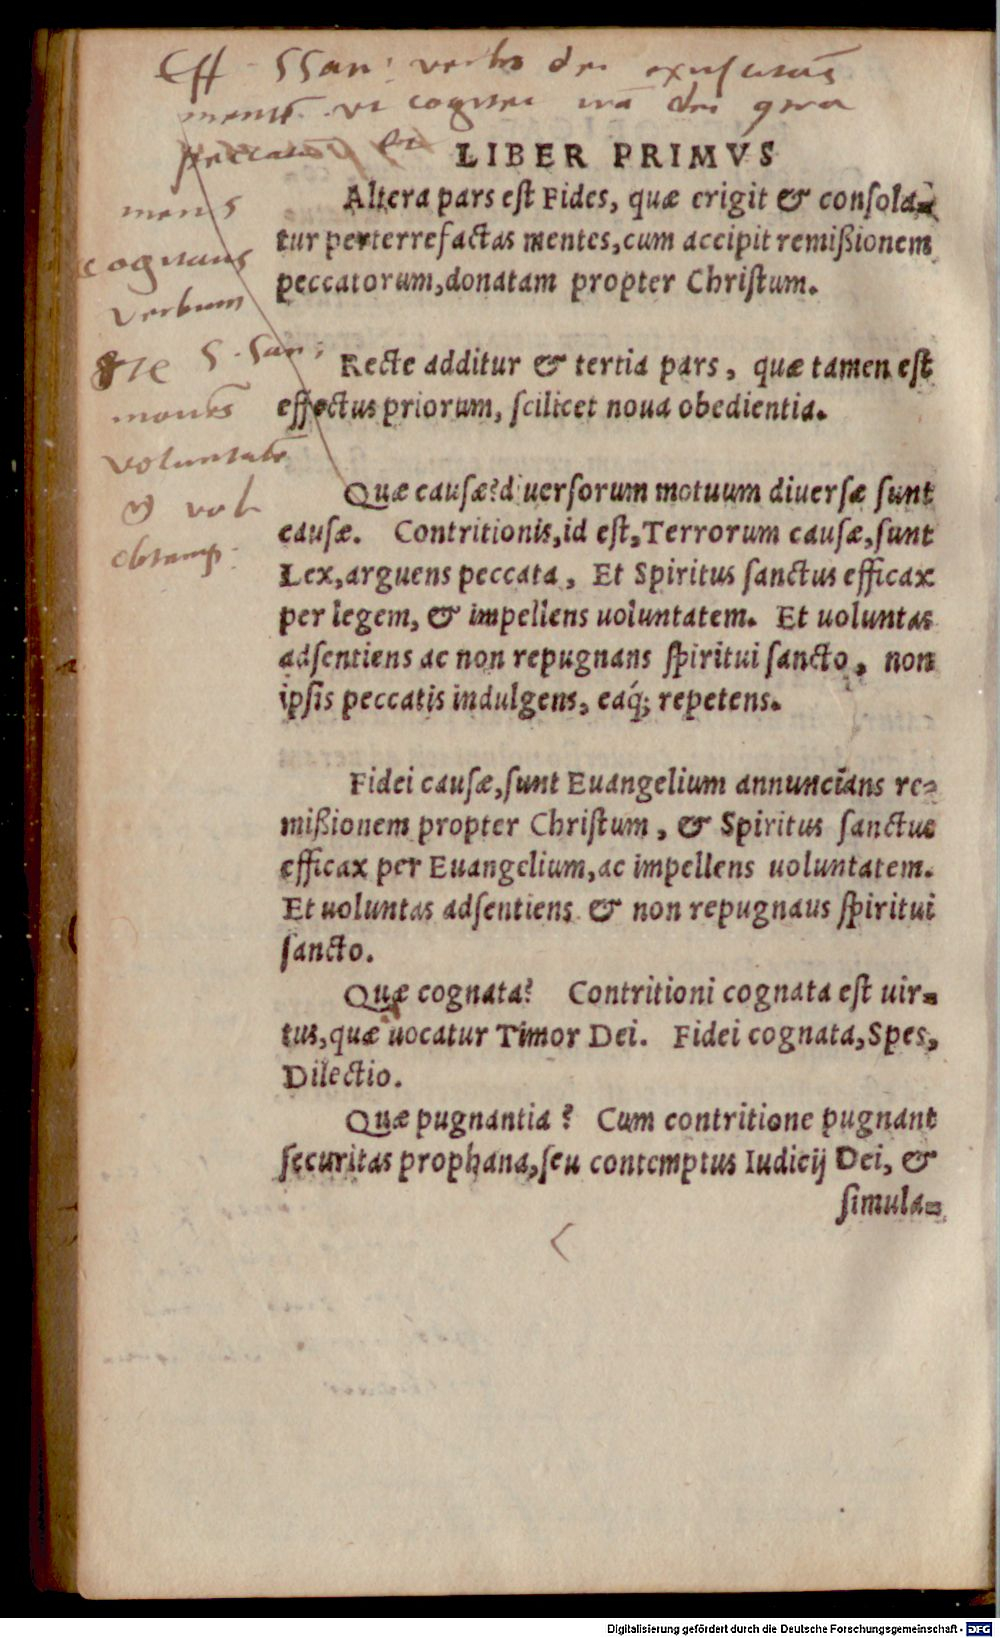 mens
cognans
verbum
LIBER PRIMVS
Altera pars eſt Fides, quæ erigit & conſola=
tur perterrefactas mentes, cum accipit remißionem
peccatorum, donatam propter Chriſtum.
Recte additur & tertia pars, quæ tamen eſt
effectus priorum, ſcilicet noua obedientia.
Quæ cauſæ? diuerſorum motuum diuerſæ ſunt
cauſæ. Contritionis, id eſt, Terrorum cauſæ, ſunt
Lex, arguens peccata, Et Spiritus ſanctus efficax
per legem, & impellens uoluntatem. Et uoluntas
adſentiens ac non repugnans ſpiritui ſancto, non
ipſis peccatis indulgens, eaq́; repetens.
Fidei cauſæ, ſunt Euangelium annuncians re=
mißionem propter Chriſtum, & Spiritus ſanctus
efficax per Euangelium, ac impellens uoluntatem.
Et uoluntas adſentiens & non repugnaus ſpiritui
ſancto.
Quæ cognata? Contritioni cognata eſt uir=
tus, quæ uocatur Timor Dei. Fidei cognata, Spes,
Dilectio.
Quæ pugnantia? Cum contritione pugnant
ſecuritas prophana, ſeu contemptus Iudicij Dei, &
ſimula=
Digitalisierung gefördert durch die Deutsche Forschungsgemeinschaft - DFG